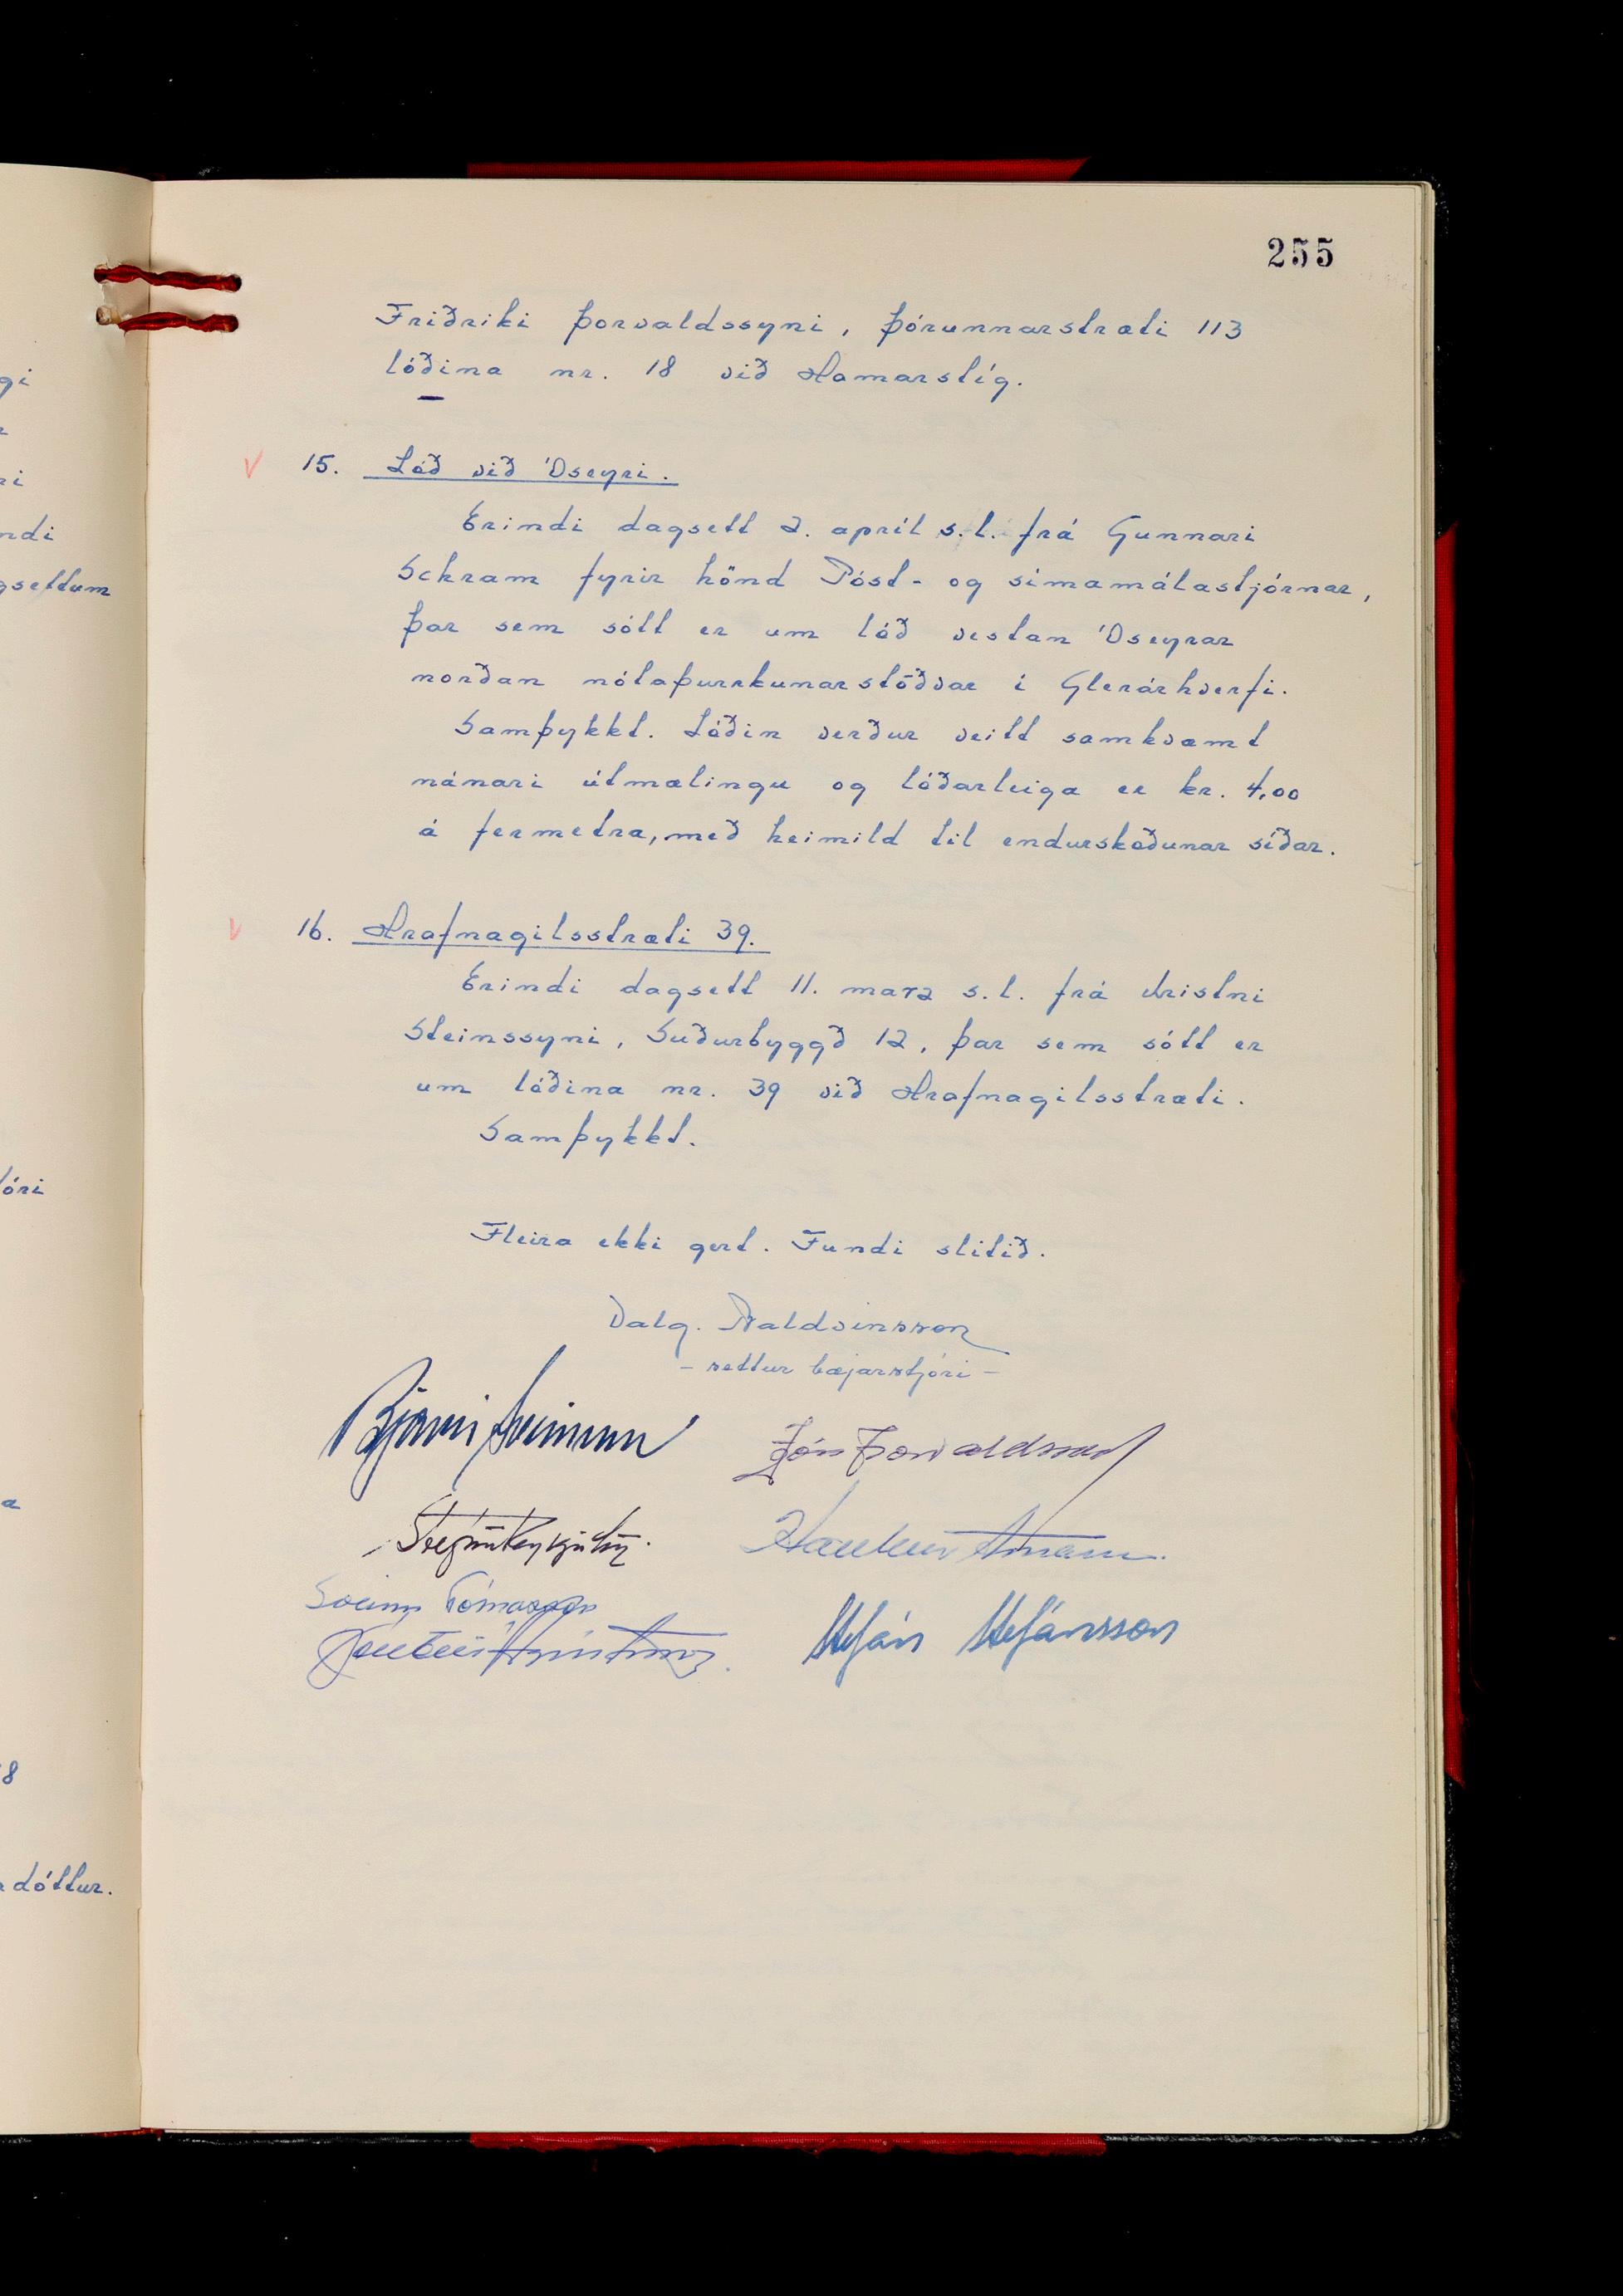 255
Friðriki Þorvaldssyni, Þórunnarstræti 113
lóðina nr. 18 við Hamarstíg.
15. Lóð við Óseyri.
Erindi dagsett 2. apríl s.l. frá Gunnari
Schram fyrir hönd Póst- og símamálastjórnar,
þar sem sótt er um lóð vestan Óseyrar
norðan nótaþurrkunarstöðvar í Glerárhverfi.
Samþykkt. Lóðin verður veitt samkvæmt
nánari útmælingu og lóðarleiga er kr. 4,00
á fermetra, með heimild til endurskoðunar síðar.
16. Hrafnagilsstræti 39.
Erindi dagsett 11. marz s.l. frá Kristni
Steinssyni, Suðurbyggð 12, þar sem sótt er
um lóðina nr. 39 við Hrafnagilsstræti.
Samþykkt.
Fleira ekki gert. Fundi slitið.
Valg. Baldvinsson
- settur bæjarstjóri -
Bjarni Sveinsson
Jón Þorvaldsson
Stefán Reykjalín.
Haukur Árnason.
Sveinn Tómasson
Stefán Stefánsson
gi
ri
ndi
gsettum
óri
a
8
dóttur.